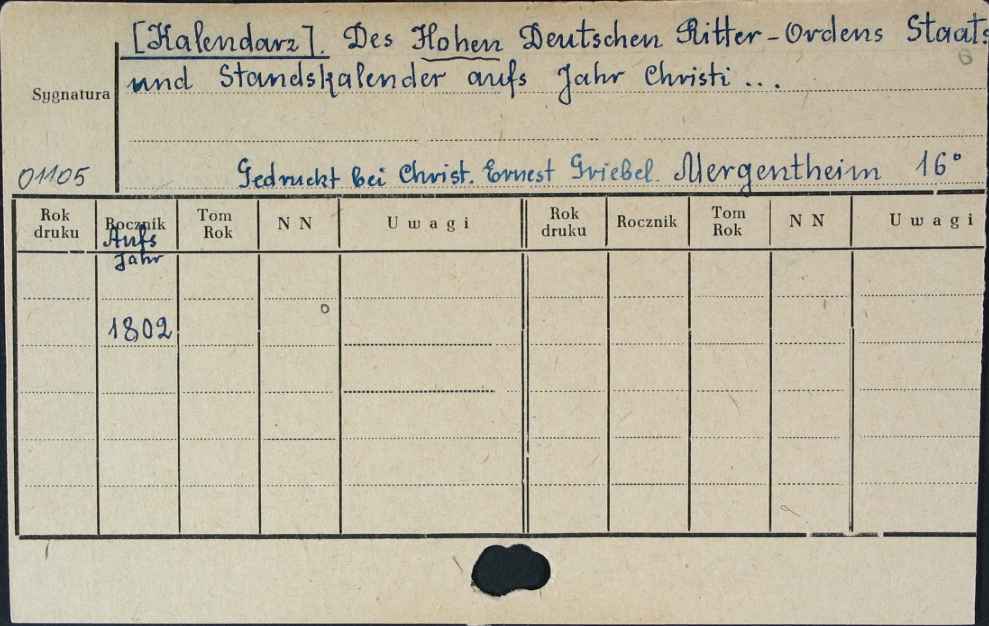 [Kalendarz]. Des Hohen Deutschen Ritter-Ordens Staats
6
und Standskalender aufs Jahr Christi ...
Sygnatura
01105
Gedruckt bei Christ. Ernest Griebel. Mergentheim 16°
Rok druku Rocznik Tom Rok N N Uwagi Rok druku Rocznik Tom Rok N N Uwagi
Aufs
Jahr
1802